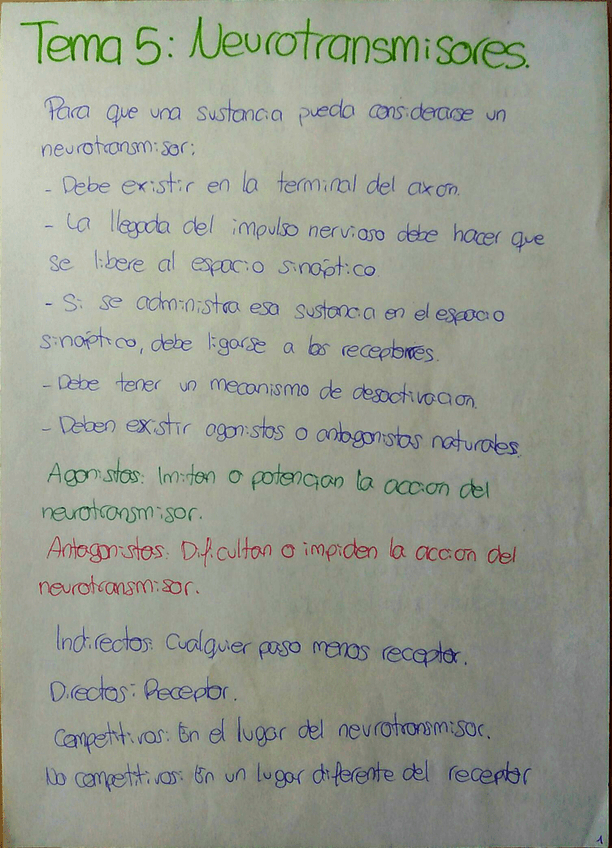 Tema 5: Neurotransmisores.
Para que una sustancia pueda considerarse un
neurotransmisor:
- Debe existir en la terminal del axon.
- La llegada del impulso nervioso debe hacer que
se libere al espacio sináptico
- Si se administra esa sustancia en el espacio
sináptico, debe ligarse a los receptores.
- Debe tener un mecanismo de desactivacion.
- Deben existir agonistas o antagonistas naturales.
Agonistas: Imitan o potencian la accion del
neurotransmisor.
Antagonistas: Dificultan o impiden la accion del
neurotransmisor.
Indirectos: Cualquier paso menos receptor.
Directos: Receptor.
Competitivos: En el lugar del neurotransmisor.
No competitivos: En un lugar diferente del receptor
1